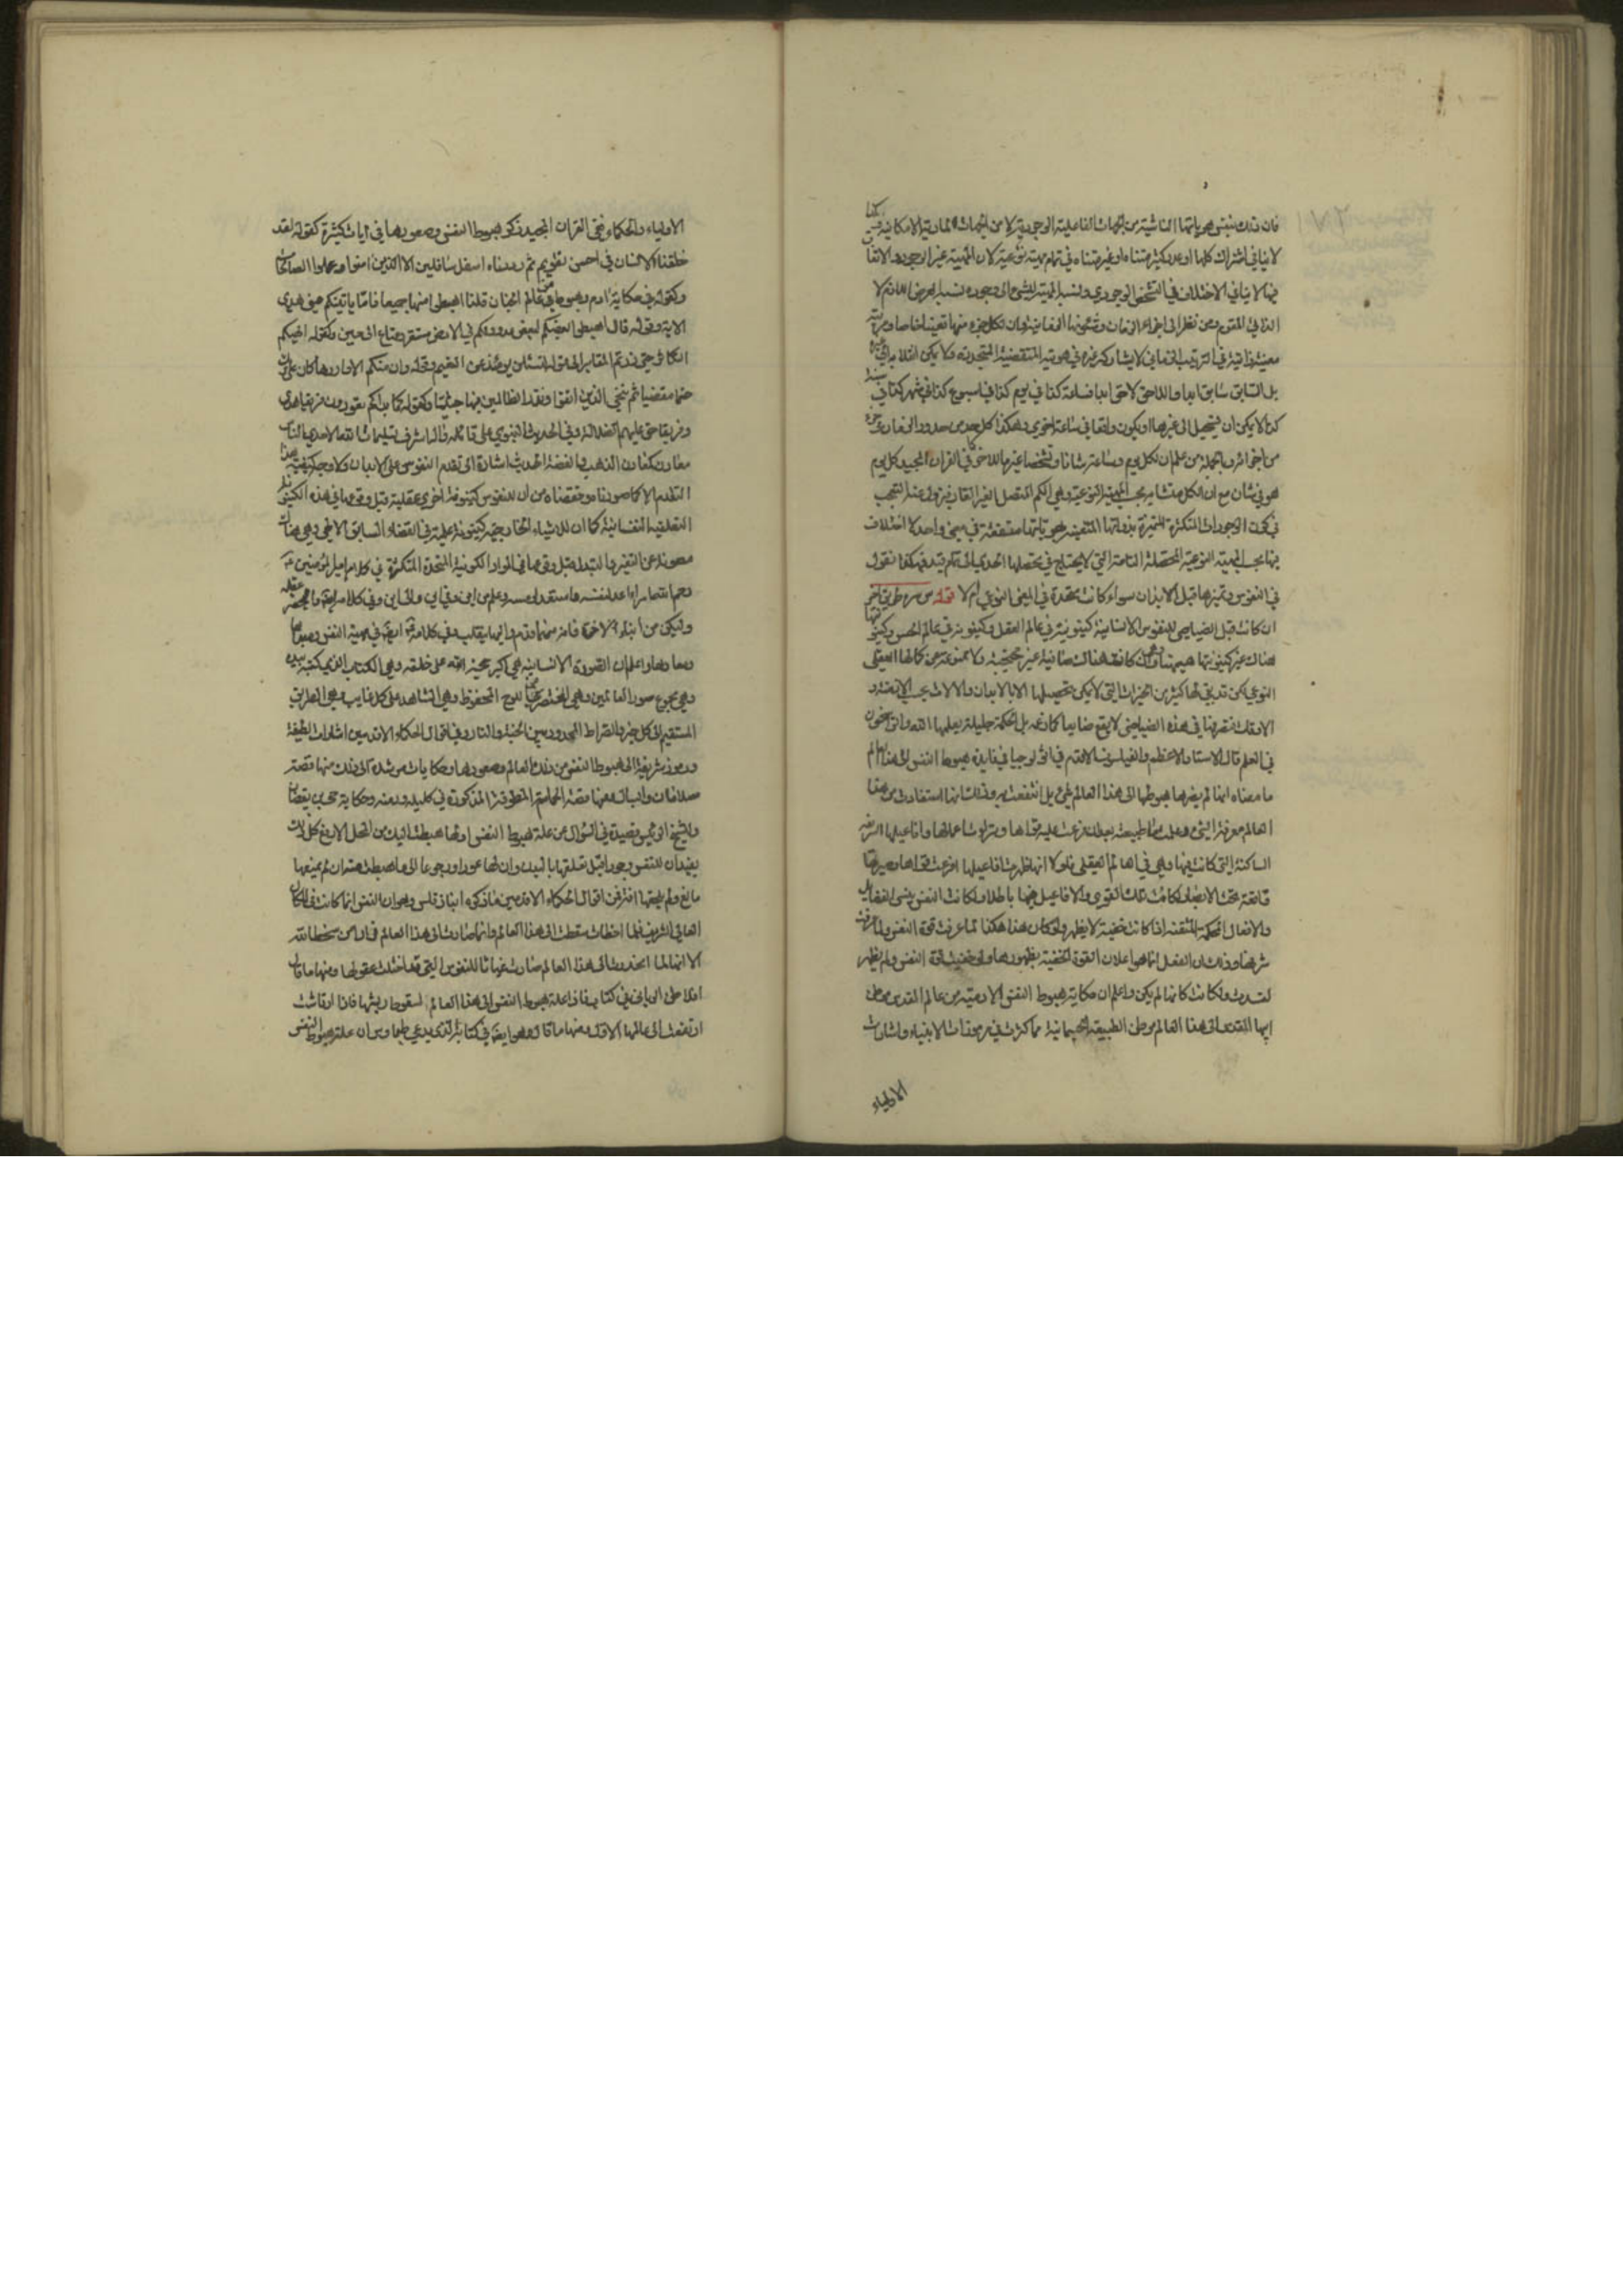 فان ذلك بنفس هوياتها الناشية من الجهات الفاعلية الوجودية لا من الجهات المادية الامكانية
لا ينافي اشتراك كلها او عدد كثير متناه او غير متناه في تمام مهية نوعية لان المهية غير الوجود والاتفاق
فيها لا ينافي الاختلاف في التشخص الوجودي ونسبة المهية الشيء الى وجوده نسبة العرض اللازم لا
الذاتي المقوم ومن نظر الى اجزاء الزمان وان لكل جزء منها تعينا خاصا ومرتبة
معينة ذاتية في الترتيب الزماني لا يشاركه غيره في هويته المنقضية المتجددة ولا يمكن انقلابه الى غيره
بل السابق سابق ابدا واللاحق لاحق ابدا فساعة كذا في يوم كذا في اسبوع كذا في شهر كذا في سنة
كذا لا يمكن ان يستحيل الى غيرها او يكون واقعا في ساعة اخرى وهكذا كل حد من حدود الزمان وكل جزء
من اجزائه وبالجملة من علم ان لكل يوم وساعة شانا وتشخصا غير ما للاخر كما في القران المجيد كل يوم
هو في شان مع ان الكل متشابه بحسب المهية النوعية وهي الكم المتصل الغير القار فيزول عنه التعجب
في كون الوجودات المتكثرة المتميزة بذواتها المتعينة بهوياتها متفقة في معنى واحد لا اختلاف
فيها بحسب المهية النوعية المحصلة التامة التي لا يحتاج في تحصلها الحدي الى تمام قيد فهكذا نقول
في النفوس وتميزها قبل الابدان سواء كانت متحدة في المعنى النوعي ام لا قوله من سره طريق اخر
ان كانت قبل الصياصي للنفوس الانسانية كينونة في عالم العقل وكينونة في عالم الحس وكينونتها
هناك غير كينونتها هيهنا وهي وان كانت هناك صافية غير محتجبة ولا ممنوعة عن كمالها العقلي
النوعي لكن قد بقي لها كثير من الخيرات التي لا يمكن تحصيلها الا بالابدان والالات بحسب الازمنة و
الاوقات فتصرفها في هذه الصياصي لا يقع ضايعا كما زعمه بل لحكمة جليلة يعلمها الله والراسخون
في العلم قال الاستاد الاعظم والفيلسوف الاقدم في اثولوجيا في فايدة هبوط النفس الى هذا العالم
ما معناه انها لم يضرها هبوطها الى هذا العالم شيء بل انتفعت به وذلك انها استفادت من هذا
العالم معرفة الشيء وعلمت ما طبيعته بعد ان فرغت عليه قواها وتراءت اعمالها وافاعيلها الشريفة
الساكنة التي كانت فيها وهي في العالم العقلي فلولا انها اظهرت افاعيلها وافرغت قواها وصيرتها
واقعة تحت الابصار لكانت تلك القوى والافاعيل فيها باطلا ولكانت النفس تنسى الفضايل
والافعال المحكمة المتقنة اذا كانت خفية لا يظهر ولو كان هذا هكذا لما عرفت قوة النفس ولما عرفت
شرفها وذلك ان الفعل انما هو اعلان القوة الخفية بظهورها ولو خفيت قوة النفس ولم يظهر
لفسدت ولكانت كانها لم يكن واعلم ان حكاية هبوط النفس الادمية من عالم القدس موطن
ابيها المقدس الى هذا العالم موطن الطبيعة الجسمانية مما كثرت في مرموزات الانبياء واشارات
الاولياء
الاولياء والحكماء ففي القران المجيد ذكر هبوط النفس وصعودها في ايات كثيرة كقوله لقد
خلقنا الانسان في احسن تقويم ثم رددناه اسفل سافلين الا الذين امنوا وعملوا الصالحات
وكقوله في حكاية ادم وهبوطه من عالم الجنان قلنا اهبطوا منها جميعا فاما ياتينكم مني هدى
الاية وقوله قال اهبطوا بعضكم لبعض عدو ولكم في الارض مستقر ومتاع الى حين وكقوله الهيكم
التكاثر حتى زرتم المقابر الى قوله لتسئلن يومئذ عن النعيم وقوله وان منكم الا واردها كان على ربك
حتما مقضيا ثم ننجي الذين اتقوا ونذر الظالمين فيها جثيا وكقوله كما بداكم تعودون فريقا هدى
وفريقا حق عليهم الضلالة وفي الحديث النبوي على قائله واله اشرف تسليمات الله الاحدية الناس
معادن كمعادن الذهب والفضة الحديث اشارة الى تقدم النفوس على الابدان ولا وجه لكيفية هذا
التقدم الا كما صورناه وحققناه من ان للنفوس كينونة اخرى عقلية قبل وقوعها في هذه
التعلقية النفسانية كما ان للاشياء الخارجية كينونة علمية في القضاء السابق الالهي وهي هناك
مصونة عن التغير والتبدل قبل وقوعها في المواد الكونية المتجددة المتكثرة في كلام امير المؤمنين
رحم الله امرا اعد لنفسه واستعد لرمسه وعلم من اين وفي اين والى اين وفي كلامه ايضا
وليكن من ابناء الاخرة فانه منها قدم واليها ينقلب وفي كلامه ايضا في مهية النفس
واعلم ان الصورة الانسانية هي اكبر حجة الله على خلقه وهي الكتاب الذي كتبه بيده
وهي مجموع صور العالمين وهي المختصر من اللوح المحفوظ وهي الشاهد على كل غايب وهي الطريق
المستقيم الى كل خير والصراط الممدود بين الجنة والنار وفي اقوال الحكماء الاقدمين اشارات لطيفة
ورموز شريفة الى هبوط النفس من ذلك العالم وصعودها وحكايات مرشدة الى ذلك منها قصة
سلامان وابسال ومنها قصة الحمامة المطوقة المذكورة في كليله ودمنه وحكاية حي بن يقظان
وللشيخ الرئيس قصيدة في السؤال عن علة هبوط النفس اولها هبطت اليك من المحل الارفع كل ذلك
يفيد ان للنفس وجودا قبل تعلقها بالبدن وان لها عودا ورجوعا الى ما هبطت منه ان لم يمنعها
مانع ولم يعقها افتر فمن اقوال الحكماء الاقدمين ما ذكره انباذقلس وهو ان النفس انما كانت في المكان
العالي الشريف فلما اخطات سقطت الى هذا العالم وانما صارت الى هذا العالم فرارا من سخط الله
الا انها لما انحدرت الى هذا العالم صارت غياثا للنفوس التي قد اختلت عقولها ومنها ما قال
افلاطن الالهي في كتاب فاذن علة هبوط النفس الى هذا العالم لسقوط ريشها فاذا ارتاشت
ارتفعت الى عالمها الاول ومنها ما قال وهو ايضا في كتابه الذي يدعي طيماوس ان علة هبوط النفس